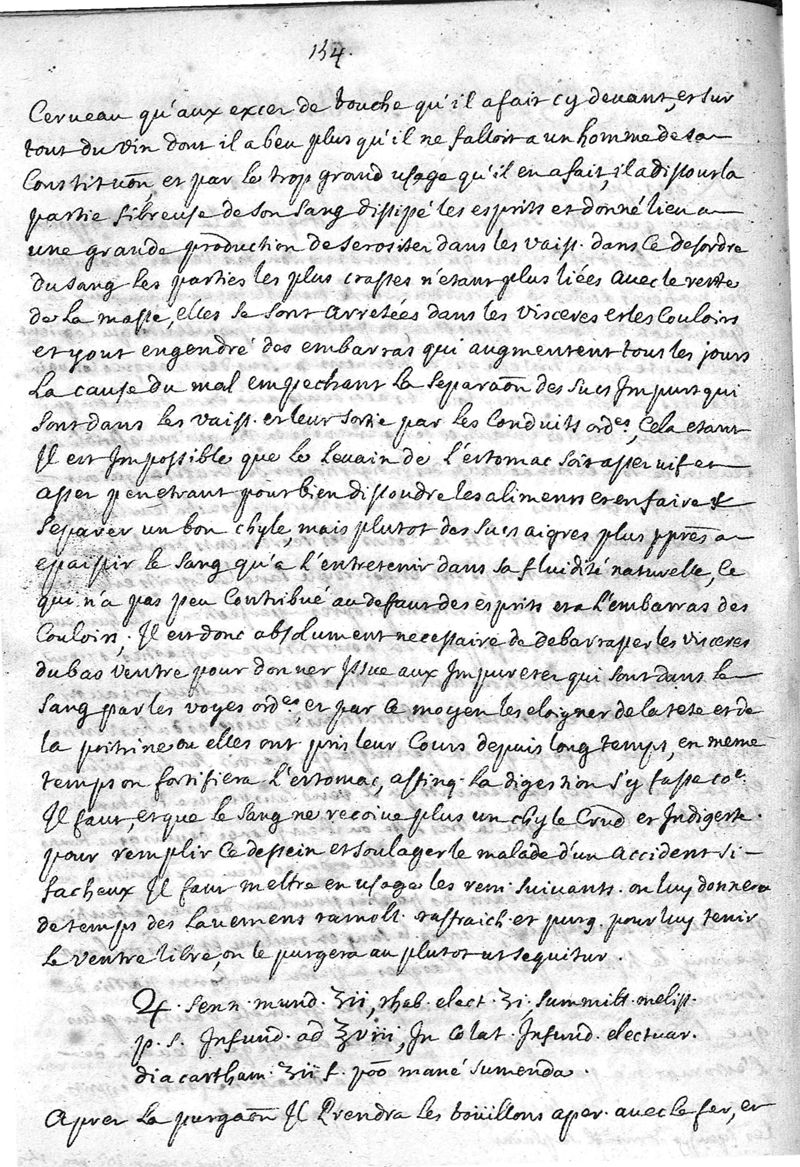 154.
Cerveau qu'aux excer de bouche qu'il a fait cy devant, et sur
tout du vin dont il a beu plus qu'il ne falloit a un homme de sa
Constitu͠on, et par le trop grand usage qu'il en a fait, il a dissout la
partie fibreuse de son sang dissipé les esprits et donné lieu a
une grande production de serositez dans les vaiss. dans ce desordre
du sang les parties les plus crasses n'etant plus liées avec le reste
de la masse, elles se sont arretées dans les visceres et les Couloirs
et y ont engendré des embarras qui augmentent tous les jours
la cause du mal empechant la separa͠on des sucs Impurs qui
sont dans les vaiss. et leur sortie par les Conduits ord.es, Cela etant
Il est Impossible que le levain de l'estomac soit asses vif et
asses penetrant pour bien dissoudre les aliments et en faire &
separer un bon chyle, mais plutot des sucs aigres plus ppres a
epaissir le sang qu'a l'entretenir dans sa fluidité naturelle, Ce
qui n'a pas peu Contribué au defaut des esprits et a l'embarras des
Couloirs, Il est donc absolument necessaire de debarrasser les visceres
du bas ventre pour donner Issue aux Impuretez qui sont dans le
sang par les voyes ord.es, et par ce moyen les eloigner de la tete et de
la poitrine ou elles ont pris leur Cours depuis long temps, en meme
temps on fortifiera l'estomac, affinq. la digestion s'y fasse co.e
Il faut, et que le sang ne recoive plus un chyle Crud et Indigeste.
pour remplir Ce dessein et soulager le malade d'un accident si
facheux Il faut mettre en usage les rem. suivants. on luy donnera
de temps des lavemens ramoll. raffraich. et purg. pour luy tenir
le ventre libre, on le purgera au plutot ut sequitur.
♃. senn. mund. ʒii, rhab. elect. ʒi, summit. meliss.
p. s. Infund. ad ℥viii, In Colat. Infund. electuar.
diacartham. ʒii s. po͠o mané sumenda.
Apres la purga͠on Il Prendra les boüillons aper. avec le fer, et